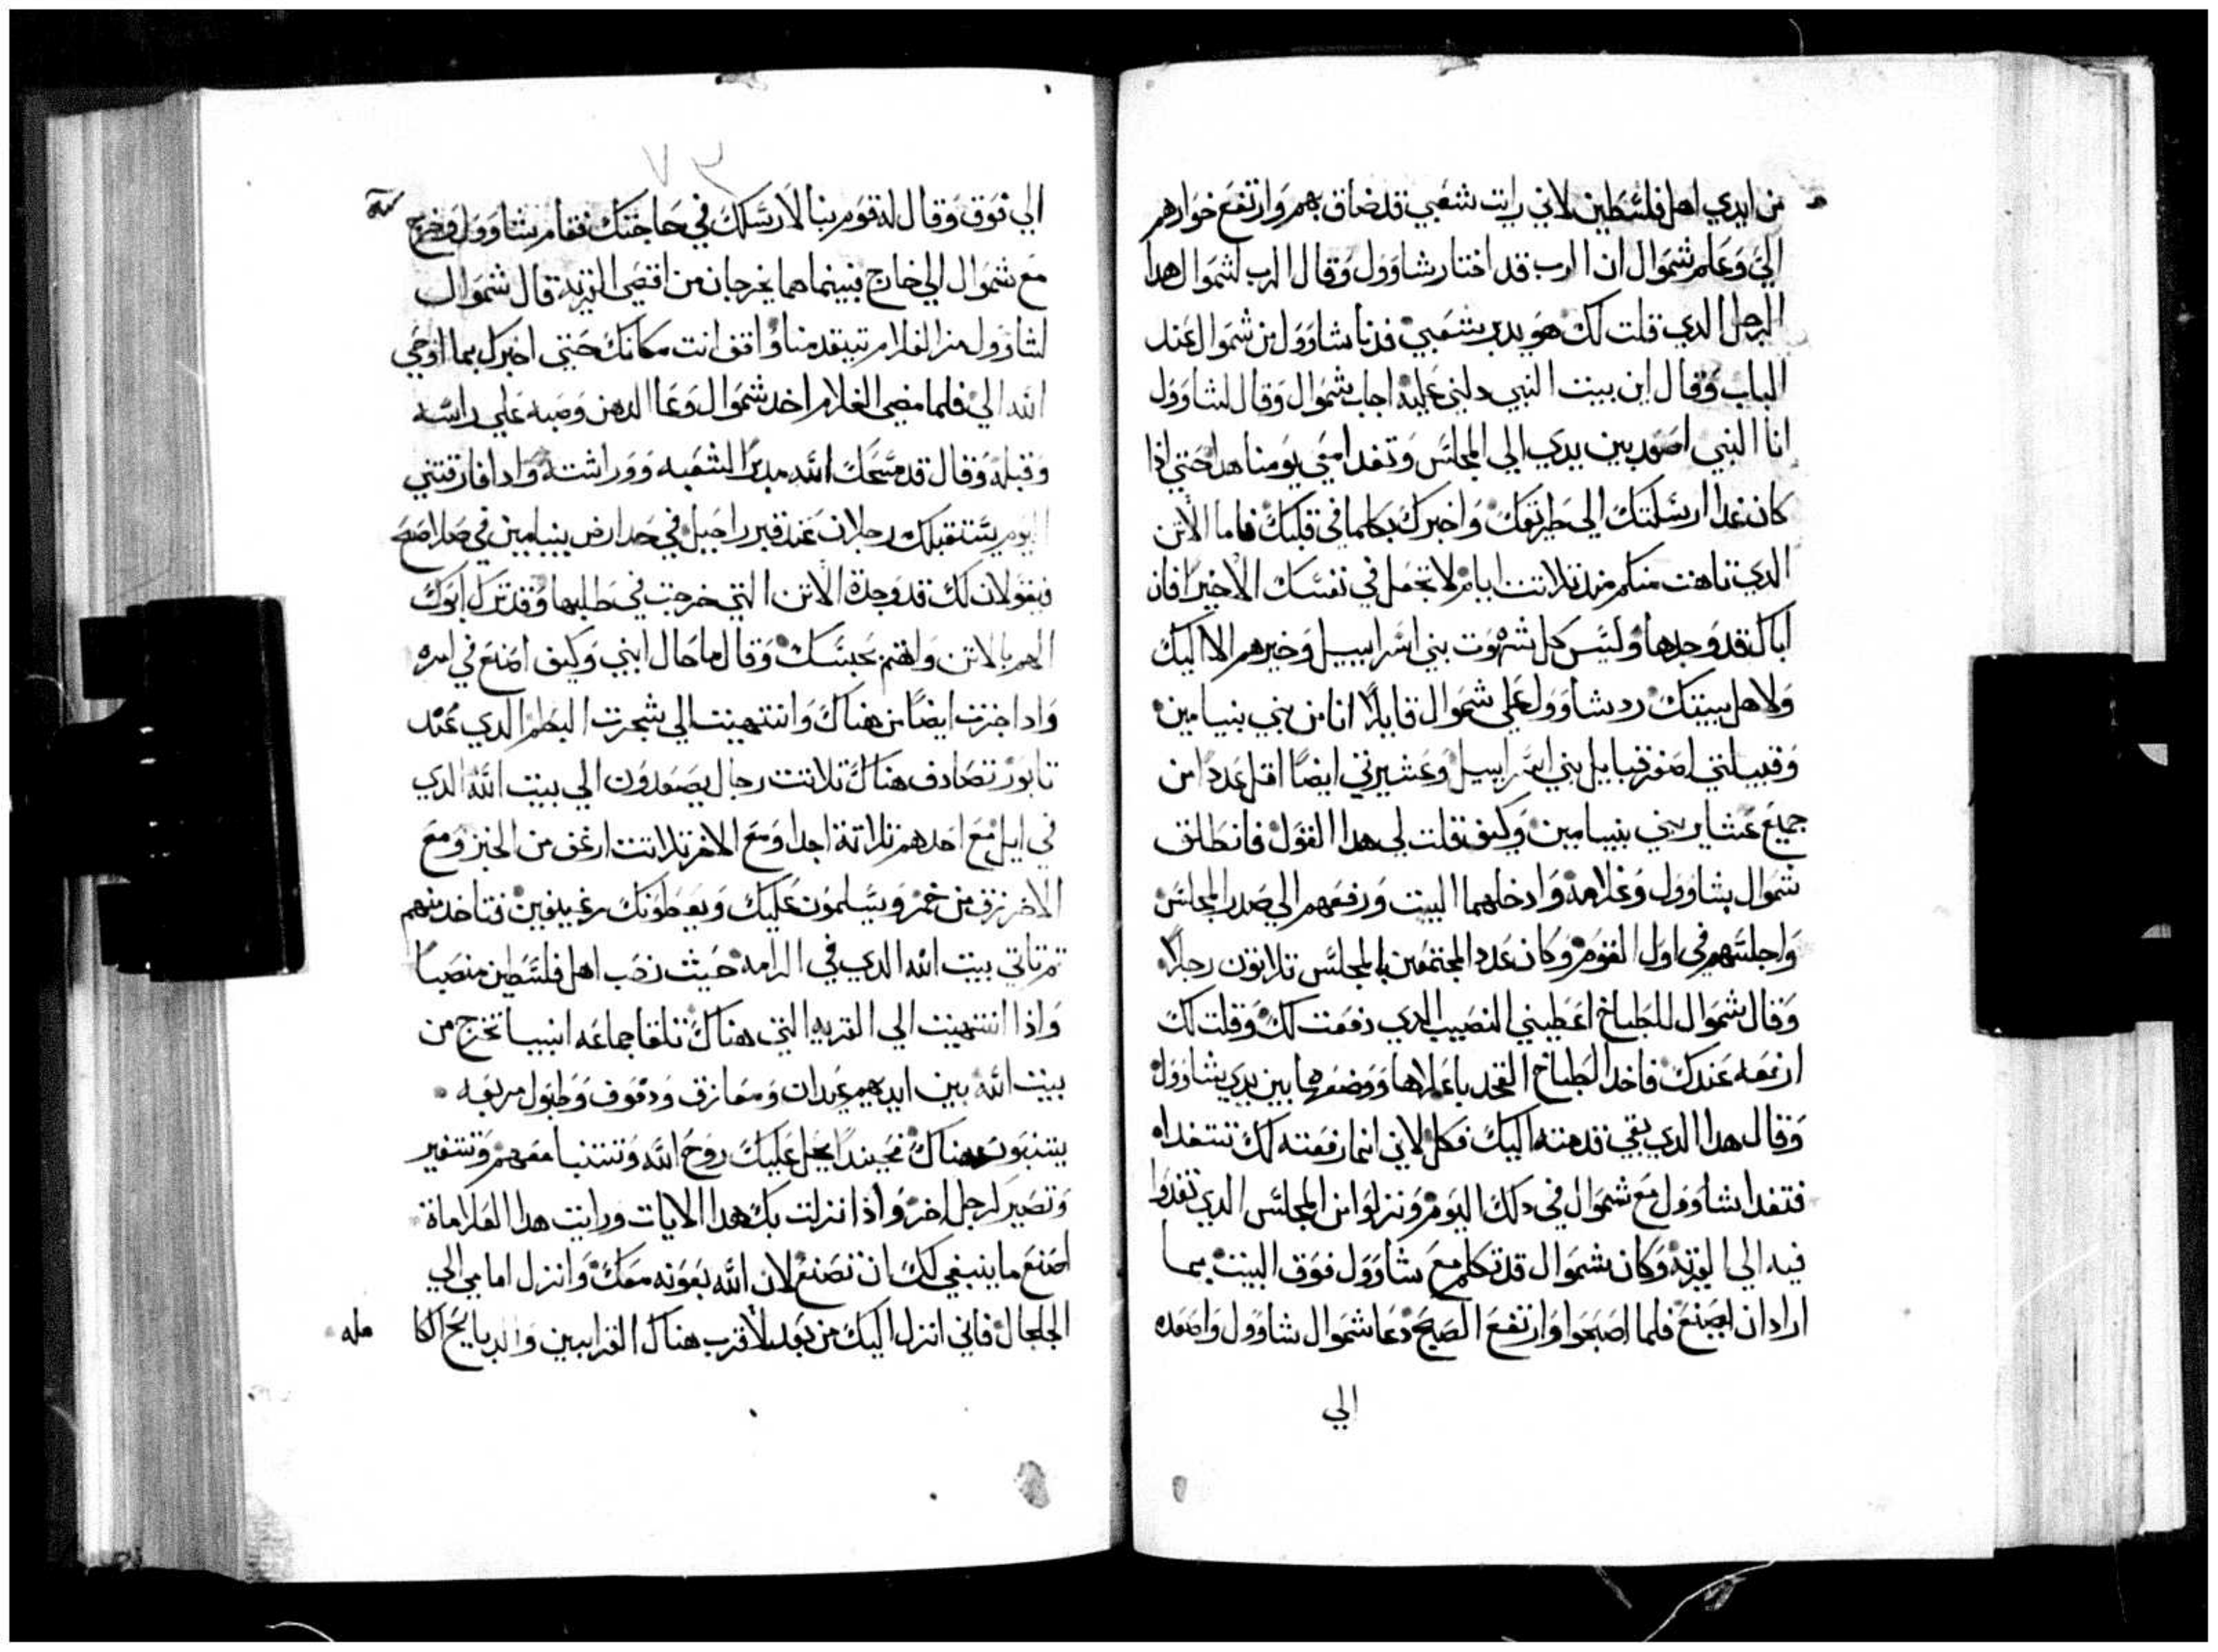 من ايدي اهل فلسطين لاني رايت شعبي قد ضاق بهم وارتفع خوارهم
الي وعلم شموال ان الرب قد اختار شاوول وقال الرب لشموال هدا
الرجل الدي قلت لك هو يدبر شعبي فدنا شاوول من شموال عند
الباب وقال اين بيت النبي دلني عليه اجاب شموال وقال لشاوول
انا النبي اصعد بين يدي الي المجلس وتغدا معي يومنا هدا حتي اذا
كان غدا ارسلتك الي طريقك واخبرك بكلما في قلبك فاما الاتن
الدي تاهت منكم مند تلاتت ايام لا تجعل في نفسك الا خيرا فان
اباك قد وجدها وليس كل شهوت بني اسراييل وخيرهم الا اليك
ولاهل بيتك رد شاوول علي شموال قايلا انا من بني بنيامين
وقبيلتي اصغر قبايل بني اسراييل وعشيرتي ايضا اقل عددا من
جميع عشاير بني بنيامين وكيف قلت لي هدا القول فانطلق
شموال بشاوول وغلامه وادخلهما البيت ورفعهم الي صدر المجلس
واجلسهم في اول القوم وكان عدد المجتمعين بالمجلس تلاتون رجلا
وقال شموال للطباخ اعطيني النصيب الدي دفعت لك وقلت لك
ارفعه عندك فاخد الطباخ الفخد باعلاها ووضعها بين يدي شاوول
وقال هدا الدي بقي قدمته اليك فكل لاني انما رفعته لك تتغداه
فتغدا شاوول مع شموال في دلك اليوم ونزلوا من المجلس الدي تغدوا
فيه الي القرية وكان شموال قد تكلم مع شاوول فوق البيت بما
اراد ان يصنع فلما اصبحوا وارتفع الصبح دعا شموال شاوول واصعده
الي
الي فوق وقال له قوم بنا لارسلك في حاجتك فقام شاوول وخرج
مع شموال الي خارج فبينما هما يخرجان من اقصي القرية قال شموال
لشاوول مر الغلام يتقدمنا واقف انت مكانك حتي اخبرك بما اوحي
الله الي فلما مضي الغلام اخد شموال وعا الدهن وصبه علي راسه
وقبله وقال قد مسحك الله مدبرا لشعبه ووراثته وادا فارقتني
اليوم يستقبلك رجلان عند قبر راحيل في حد ارض بنيامين في
فيقولان لك قد وجدة الاتن التي خرجت في طلبها وقد ترك ابوك
الهم بالاتن واهتم بحبسك وقال ما حال ابني وكيف اصنع في امره
وادا جزت ايضا من هناك وانتهيت الي شجرت البطم الدي عند
تابور تصادف هناك تلاتت رجال يصعدون الي بيت الله الدي
في ايل مع احدهم تلاتة اجدا ومع الاخر تلاتت ارغف من الخبز ومع
الاخر زق من خمر ويسلمون عليك ويعطونك رغيفين فتاخد منهم
تم تاتي بيت الله الدي في الرامه حيث نصب اهل فلسطين منصبا
واذا انتهيت الي القريه التي هناك تلقا جماعه انبيا تخرج من
بيت الله بين ايديهم عيدان ومعازف ودفوف وطبول مربعه
يتنبون هناك فحيندا يحل عليك روح الله وتتنبا معهم وتتغير
وتصير لرجل اخر واذا انزلت بك هدا الايات ورايت هدا العلاماة
اصنع ما ينبغي لك ان تصنع لان الله بعونه معك وانزل امامي الي
الجلجال فاني انزل اليك من بعد لاقرب هناك القرابين والدبايح الكا
مله